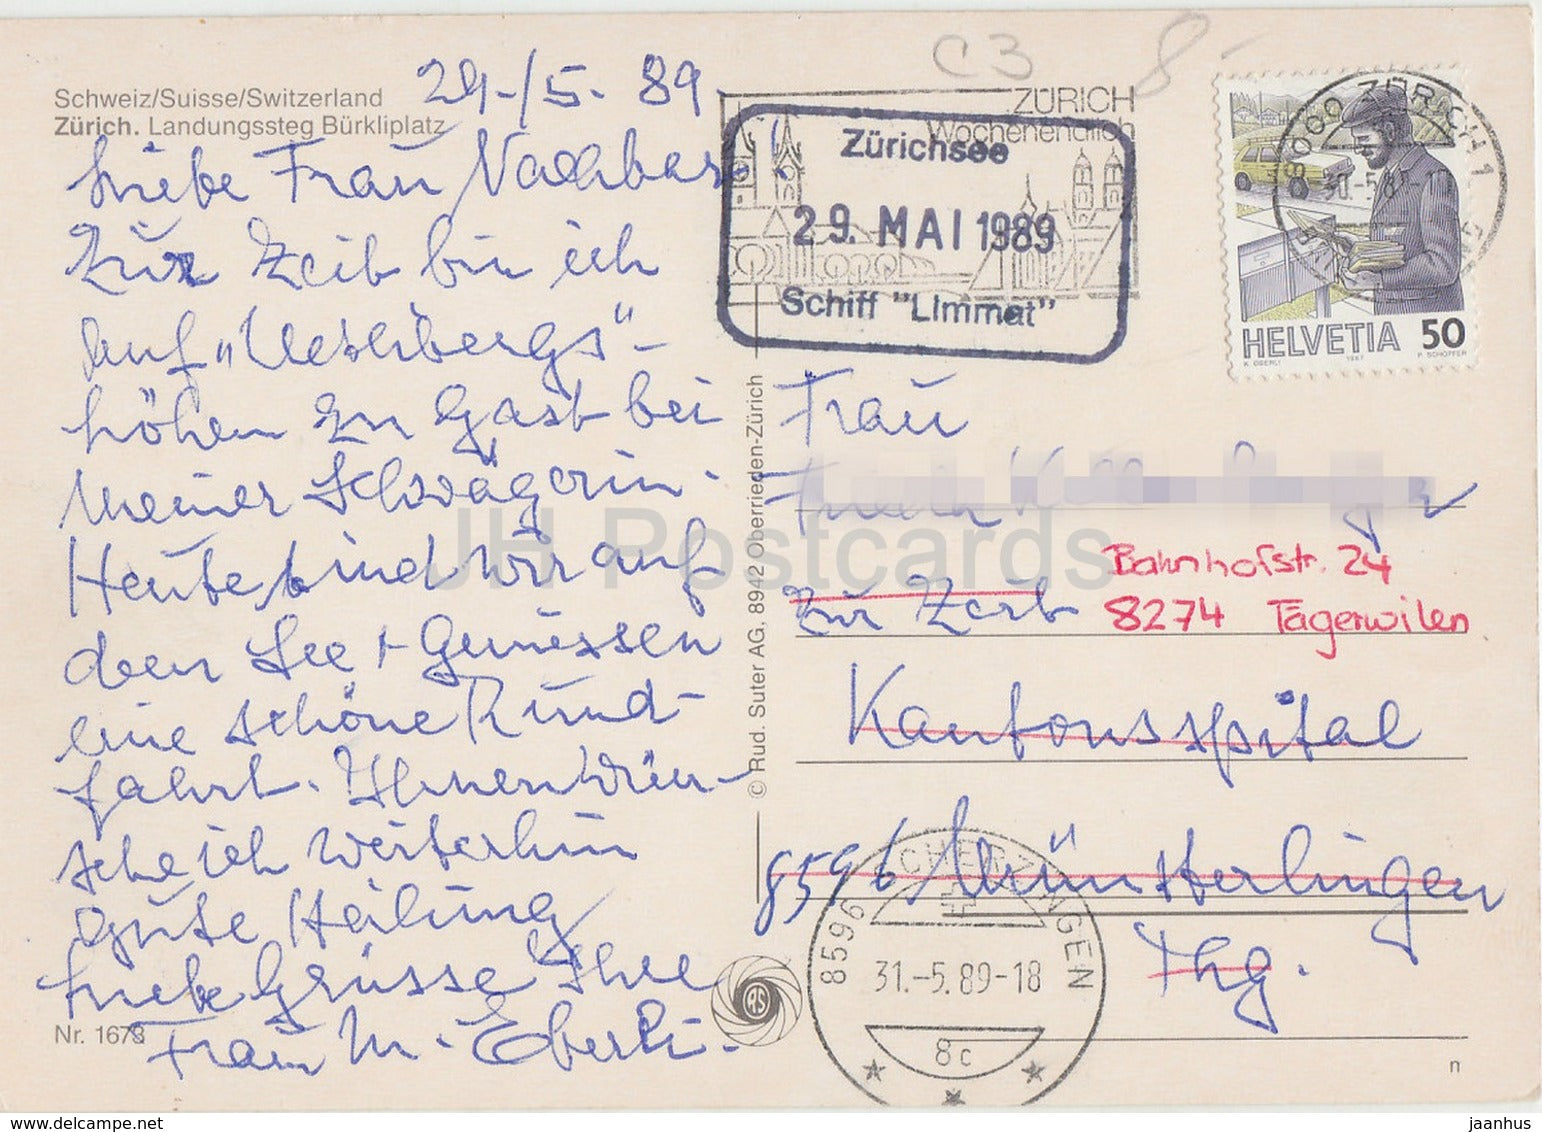 C3 8-
Schweiz/Suisse/Switzerland
Zürich. Landungssteg Bürkliplatz
29./5. 89
Liebe Frau Nachbar!
Zur Zeit bin ich
auf „Uetlibergs"-
höhen zu Gast bei
meiner Schwägerin.
Heute sind wir auf
dem See + geniessen
eine schöne Rund-
fahrt. Ihnen wün-
sche ich weiterhin
gute Heilung
Liebe Grüsse Ihre
Frau M. Eberli.
Nr. 1673
ZÜRICH
Wochenendlich
Zürichsee
29. MAI 1989
Schiff "Limmat"
8000 ZÜRICH 1
HELVETIA 50
K. OBERLI 1987 P. SCHOPFER
© Rud. Suter AG, 8942 Oberrieden-Zürich
Frau
Bahnhofstr. 24
8274 Tägerwilen
Zur Zeit
Kantonsspital
8596 Münsterlingen
Thg.
8596 SCHERZINGEN
31.-5.89-18
8c
RS
n
JH Postcards
www.delcampe.net
jaanhus